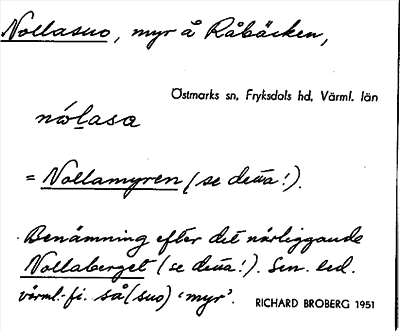 Nollasuo, myr å Råbäcken,
Östmarks sn, Fryksdals hd, Värml. län
nóĺasa
= Nollamyren (se detta!).
Benämning efter det närliggande
Nollaberget (se detta!). Sen. led.
värml.-fi. så (suo) 'myr'.
RICHARD BROBERG 1951